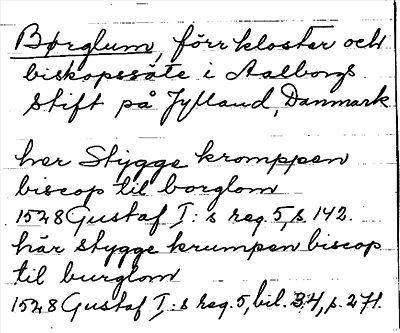 Børglum, förr kloster och
biskopssäte i Aalborgs
stift på Jylland, Danmark
her Stygge kromppen
biscop til borglom
1528 Gustaf I:s reg. 5, s. 142.
här stygge krumpen biscop
til burglom
1528 Gustaf I:s reg. 5, bil. 34, s. 271.